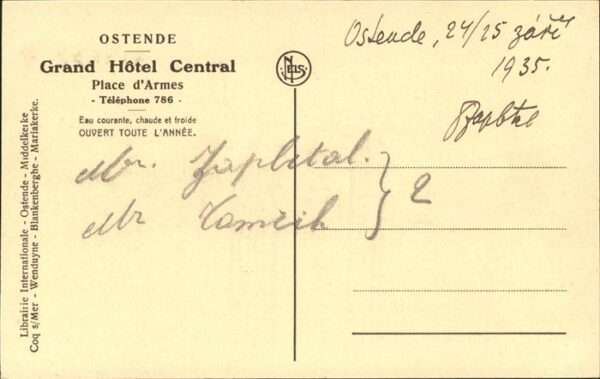 OSTENDE
Grand Hôtel Central
Place d'Armes
- Téléphone 786 -
Eau courante, chaude et froide
OUVERT TOUTE L'ANNÉE.
Librairie Internationale - Ostende - Middelkerke
Coq s/Mer - Wenduyne - Blankenberghe - Mariakerke.
NELS
Ostende, 24/25 září
1935.
Mr. Zapletal.
Mr
2